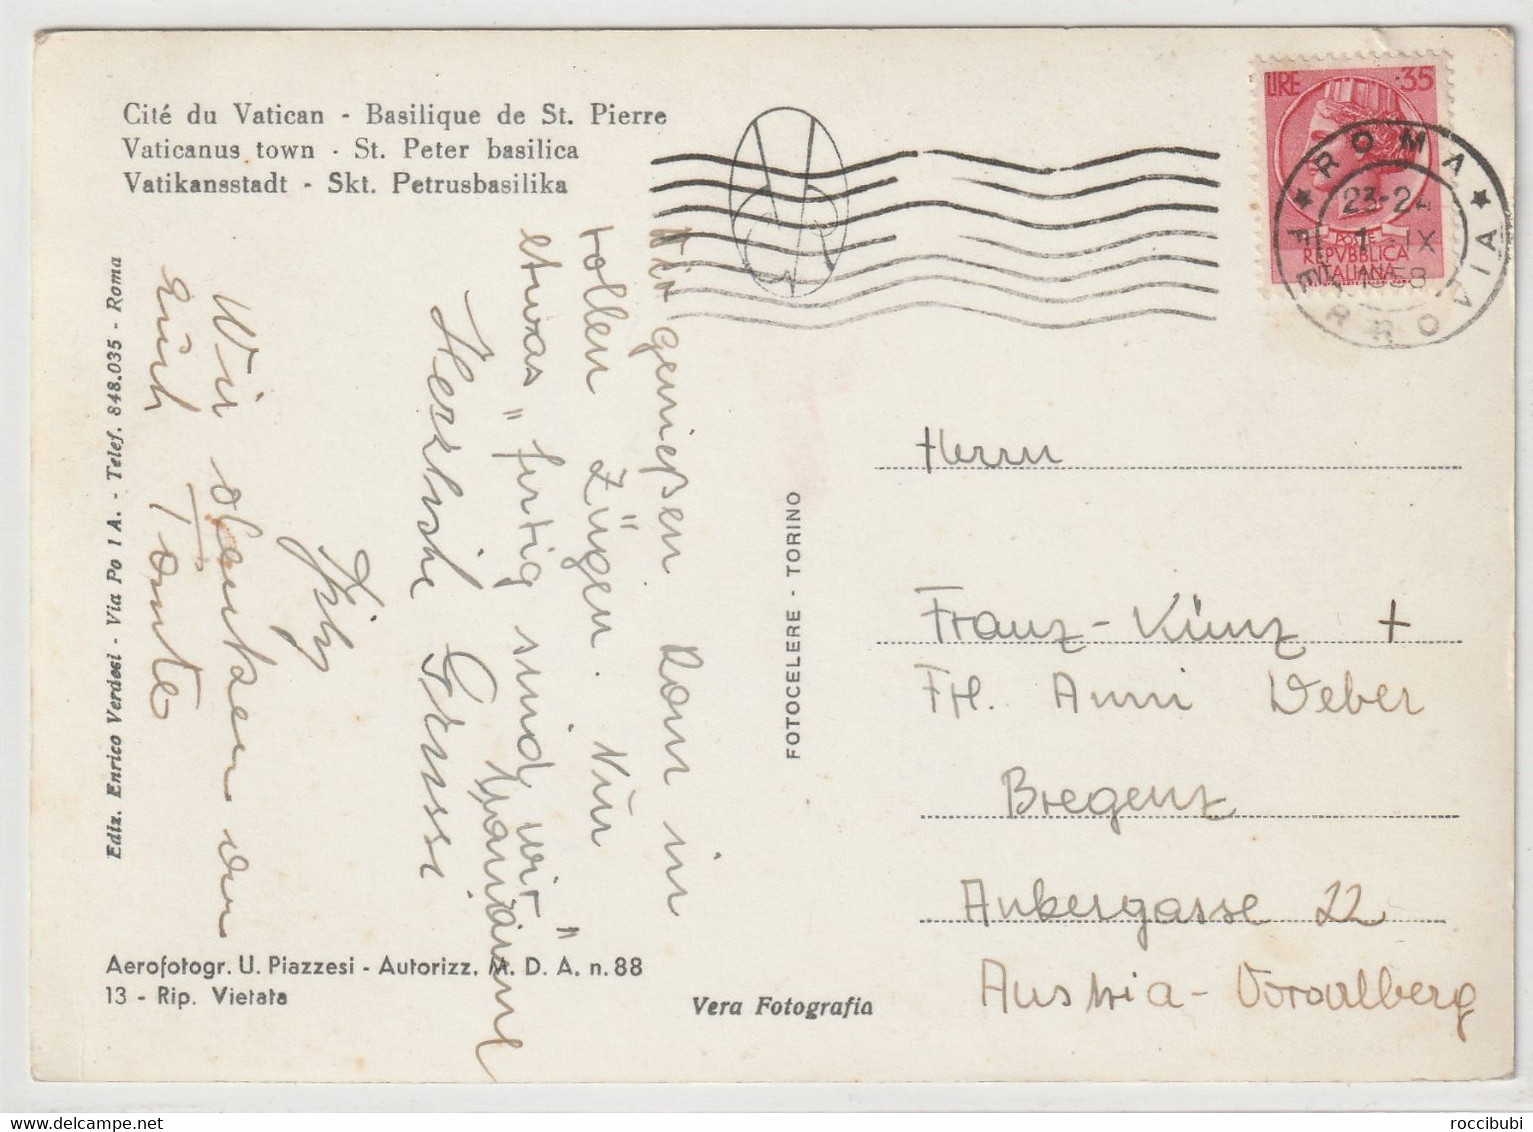 Cité du Vatican - Basilique de St. Pierre
Vaticanus town - St. Peter basilica
Vatikansstadt - Skt. Petrusbasilika
LIRE 35
POSTE
REPVBBLICA
ITALIANA
ROMA
23-24
1 - IX
1958
FERROVIA
Wir genießen Rom in
vollen Zügen. Nur
etwas "fertig sind wir"
Herzliche Grüsse
Wir denken an
Euch
Tonte
Ediz. Enrico Verdesi - Via Po 1 A. - Telef. 848.035 - Roma
FOTOCELERE - TORINO
Herrn
Franz-Künz +
Frl. Anni Weber
Bregenz
Ankergasse 22
Austria - Vorarlberg
Aerofotogr. U. Piazzesi - Autorizz. M. D. A. n. 88
13 - Rip. Vietata
Vera Fotografia
delcampe.net
roccibubi